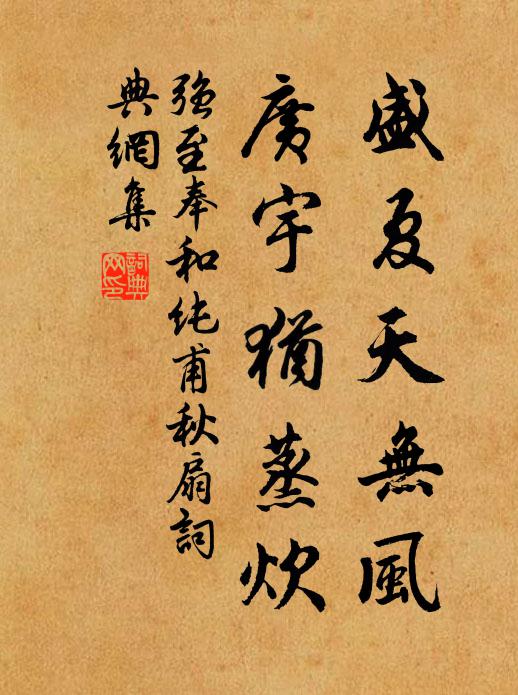 盛夏天無風
廣宇猶蒸炊
強至奉和純甫秋扇詞
典網集
詞典網印